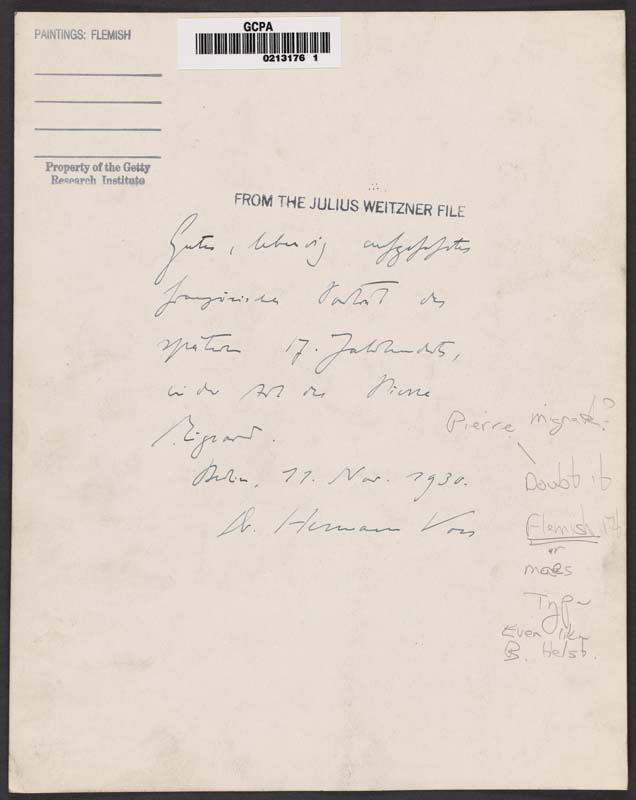 PAINTINGS: FLEMISH
GCPA
0213176 1
Property of the Getty
Research Institute
FROM THE JULIUS WEITZNER FILE
Gutes, lebendig aufgefaßtes
französisches Porträt des
späteren 17. Jahrhunderts,
in der Art des Pierre
Mignard.
Berlin, 11. Nov. 1930.
Dr. Hermann Voss
Pierre
Doubt it
Flemish
or
maes
Type
Even like
B. Helst.